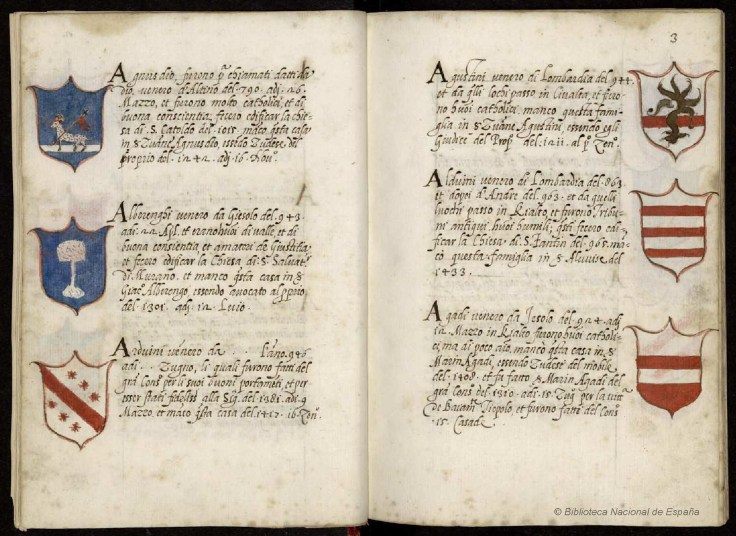 Agnusdio, furono p chiamati datti da
dio, venero d'Altino del .790. adj .26.
Mazzo, et furono molto catholici, et di
buona conscientia, fecero edificar la chie-
sa di .S. Cataldo del .1015. mãcò q̃sta casa
in .S. Zuãne Agnusdio, essẽdo Zudese del
proprio del .1242. adj .16. Nov.
Alberenghi venero da Giesolo del .943.
adj .22. Apl. et erano huoi di ualle, et di
buona consientia, et amatori de Giustitia,
et fecero edificar la Chiesa di .S. Saluat.
di Murano. et mancò q̃sta casa in .S.
Giac. Alberengo, essendo auocato al pprio.
del .1301. adj .12. Lulio.
Arduini venero da l'ano .946
adj . Zugno, li quali furono fatti del
grã Cons. per li suoi buoni portamẽti, et per
esser stati fideliss. alla Sig. del .1381. adj .9
Mazzo, et mãcò q̃sta casa del .1412. 16. Zen.
3
Agustini venero di Lombardia del .941.
et da q̃lli lochi passò in Ciualta, et furo-
no huoi catholici, mancò questa fami-
glia in .S. Zuãne Agustini, essendo egli
Giudice del Prop. del .1211. al p. Zen.
Alduini venero di Lombardia del .863.
et dopoi d'Andre del .963. et da quelli
luochi passò in Rialto, et furono Tribu-
ni antiqui, huoi humili; q̃sti fecero edi-
ficar la Chiesa di .S. Panton del .965. mã-
cò questa famiglia in .S. Aluuise del
.1433.
Agadi venero da Jesolo del .924. adj
.12. Mazzo in Rialto, furono huoi catholi-
ci, ma di poco aío, mancò q̃sta casa in .S.
Marin Agadi, essendo Zudese del mobile
del .1408. et fu fatto .S. Marin Agadi del
grã Cons. del .1310. adi .15. Zug. per la vitt.
de Baiam. Tiepolo, et furono fatti del Cons.
.15. Casade.
© Biblioteca Nacional de España